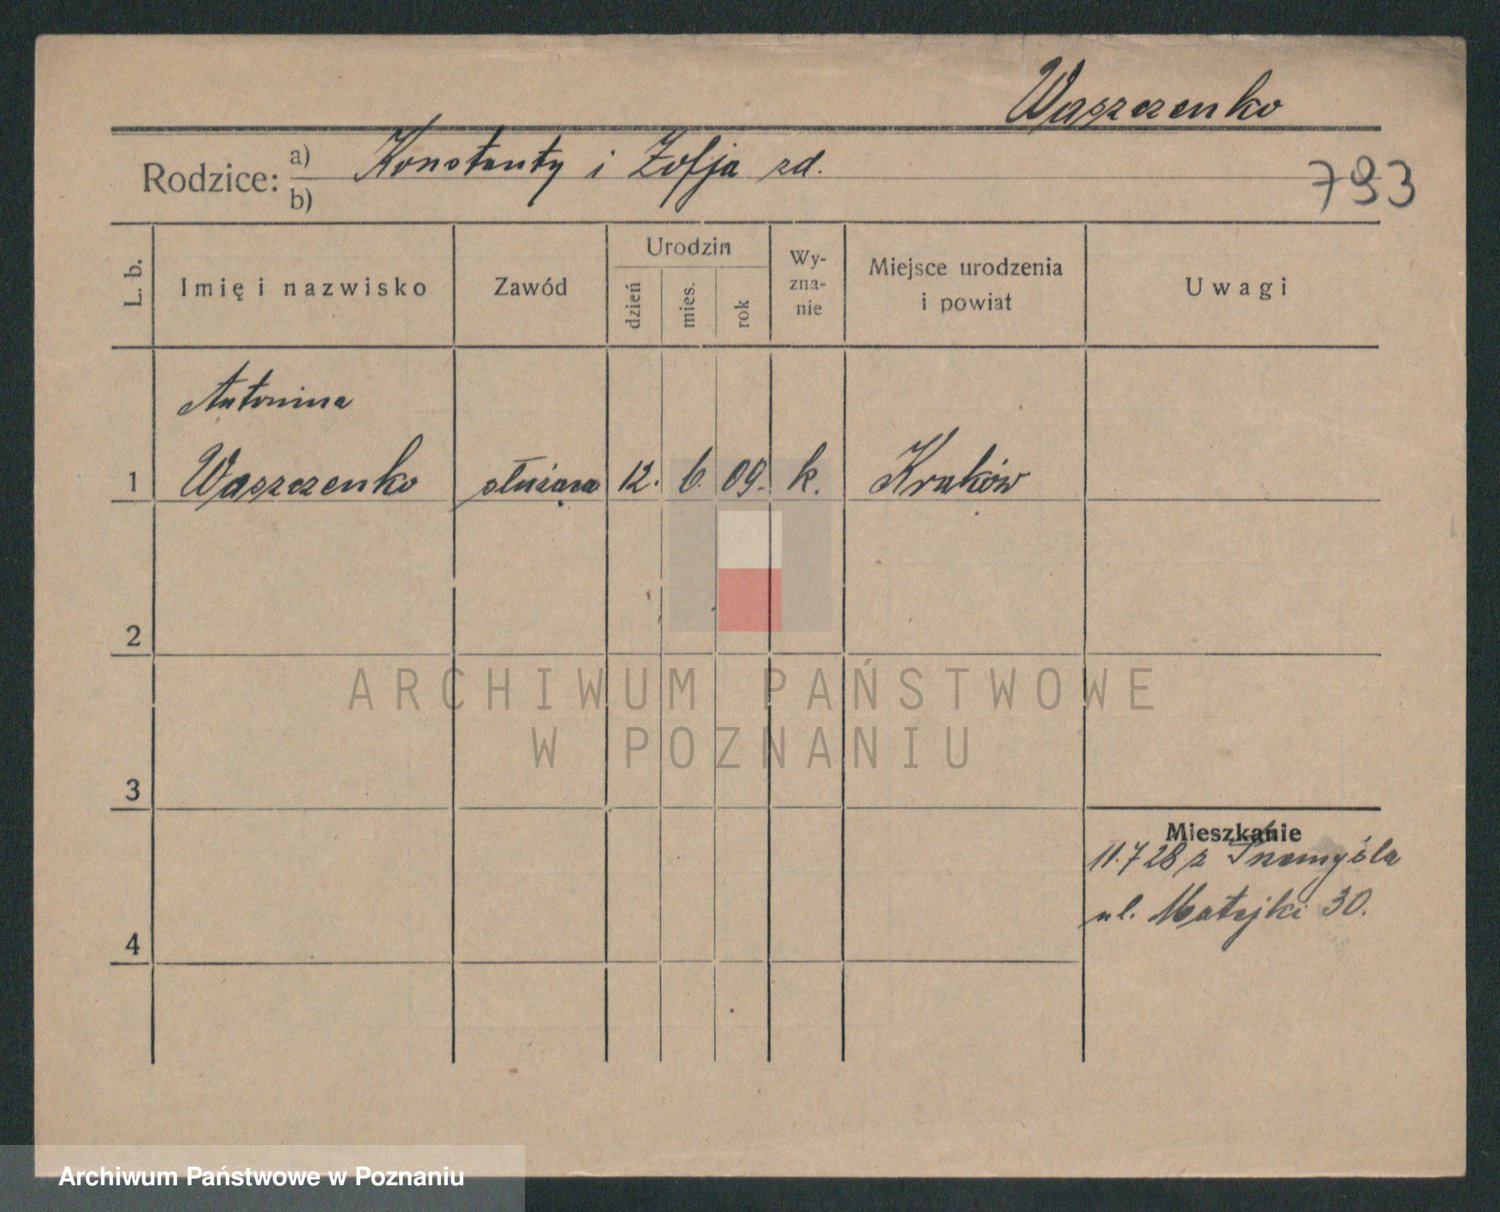 Waszczenko
Rodzice: a) Konstanty i Zofja zd.
b)
793
L. b.
Imię i nazwisko
Zawód
Urodzin
dzień
mies.
rok
Wy-
zna-
nie
Miejsce urodzenia
i powiat
Uwagi
Antonina
1 Waszczenko służąca 12. 6. 09. k. Kraków
2
ARCHIWUM PAŃSTWOWE
W POZNANIU
3
Mieszkanie
11.7 28 z Przemyśla
ul. Matejki 30.
4
Archiwum Państwowe w Poznaniu